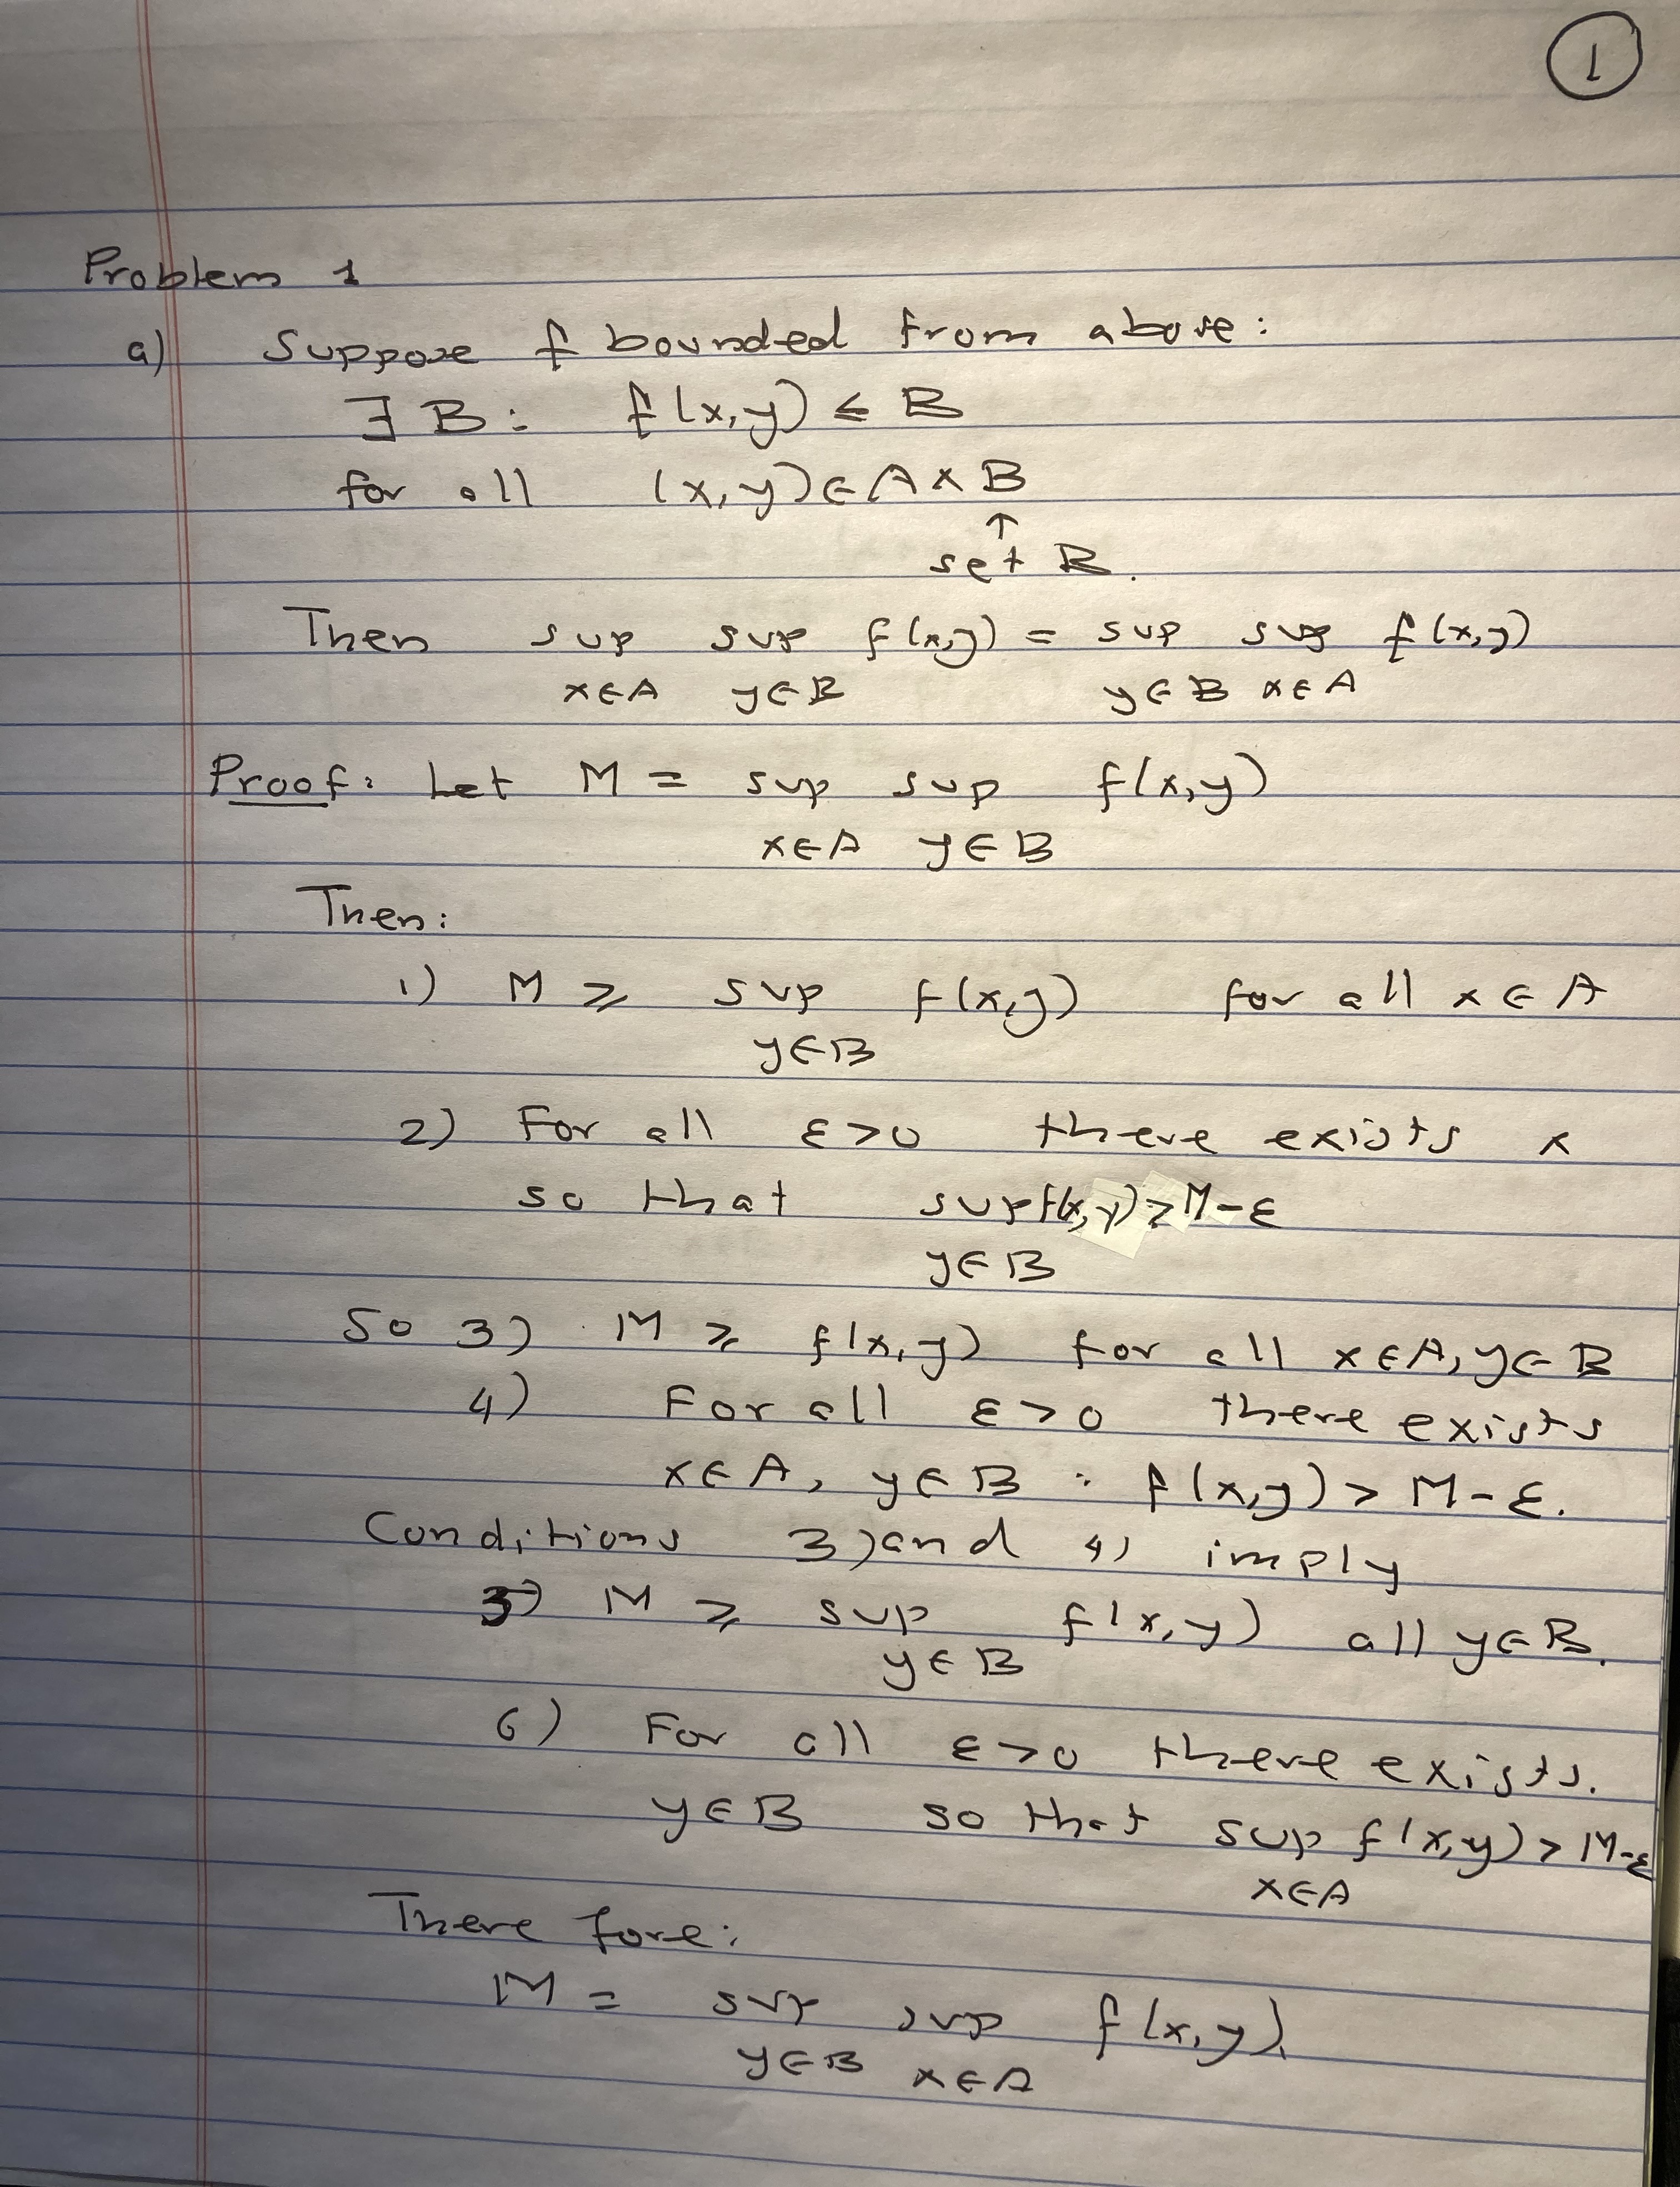 1
Problem 1
a) Suppose f bounded from above:
∃ B: f(x,y) ≤ B
for all (x,y) ∈ A × B
↑
set B.
Then sup sup f(x,y) = sup sup f(x,y)
x∈A y∈B y∈B x∈A
Proof: Let M = sup sup f(x,y)
x∈A y∈B
Then:
1) M ≥ sup f(x,y) for all x ∈ A
y∈B
2) For all ε>0 there exists x
so that sup f(x,y) > M-ε
y∈B
So 3) M ≥ f(x,y) for all x∈A, y∈B
4) For all ε>0 there exists
x∈A, y∈B : f(x,y) > M-ε.
Conditions 3) and 4) imply
5) M ≥ sup f(x,y) all y∈B.
y∈B
6) For all ε>0 there exists.
y∈B so that sup f(x,y) > M-ε
x∈A
There fore:
M = sup sup f(x,y)
y∈B x∈A